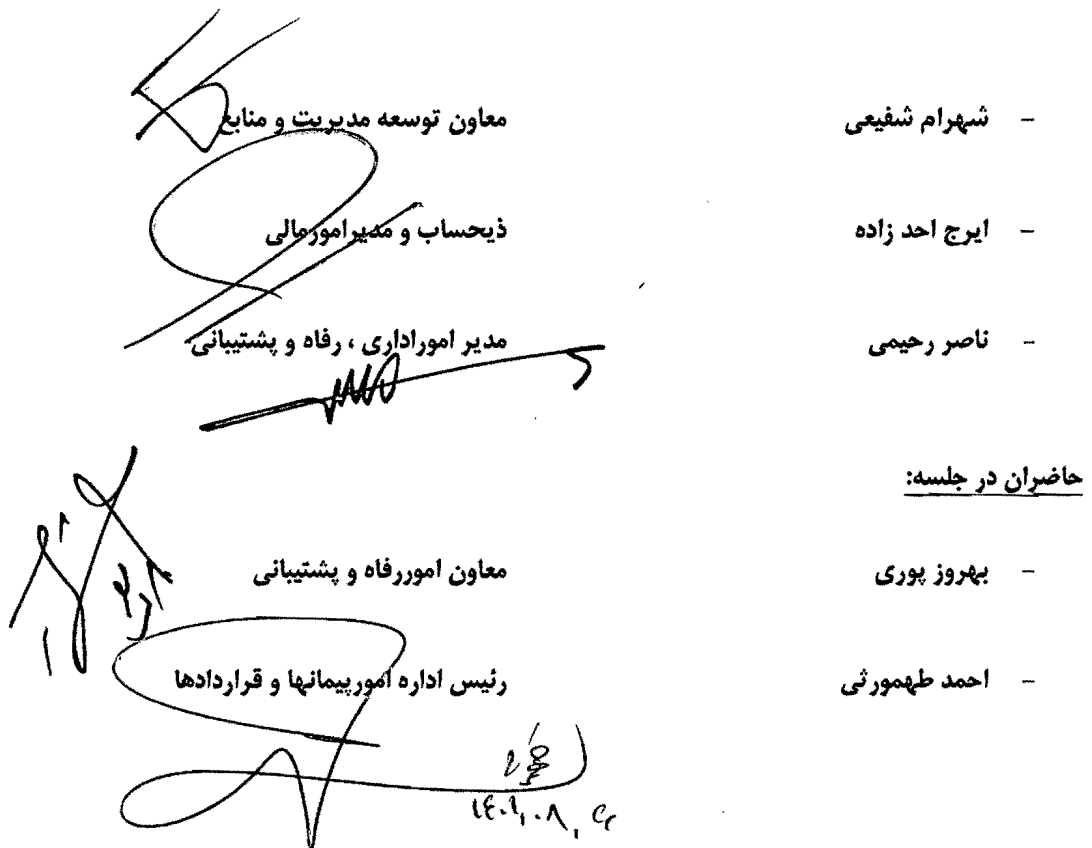 - شهرام شفیعی معاون توسعه مدیریت و منابع
- ایرج احد زاده ذیحساب و مدیرامورمالی
- ناصر رحیمی مدیر اموراداری ، رفاه و پشتیبانی
حاضران در جلسه:
- بهروز پوری معاون اموررفاه و پشتیبانی
- احمد طهمورثی رئیس اداره امورپیمانها و قراردادها